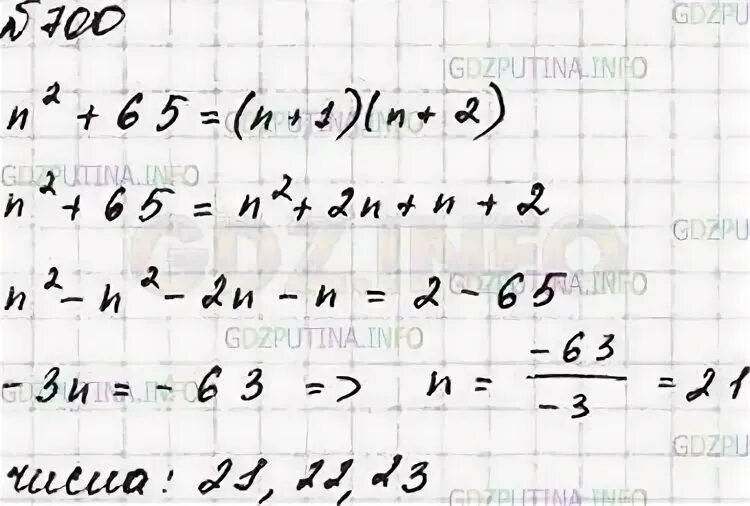 №700
GDZPU
GDZPUTINA.INFO
n² + 65 = (n + 1)(n + 2)
GDZPUTINA.INFO
n² + 65 = n² + 2n + n + 2
GDZ.INFO
GDZPU
n² - n² - 2n - n = 2 - 65
GDZPUTINA.INFO
GDZPUTINA.INFO
-3n = -63 => n = -63/-3 = 21
GDZPUTINA.INFO
GDZPU
числа: 21, 22, 23
GDZPUTINA.INFO